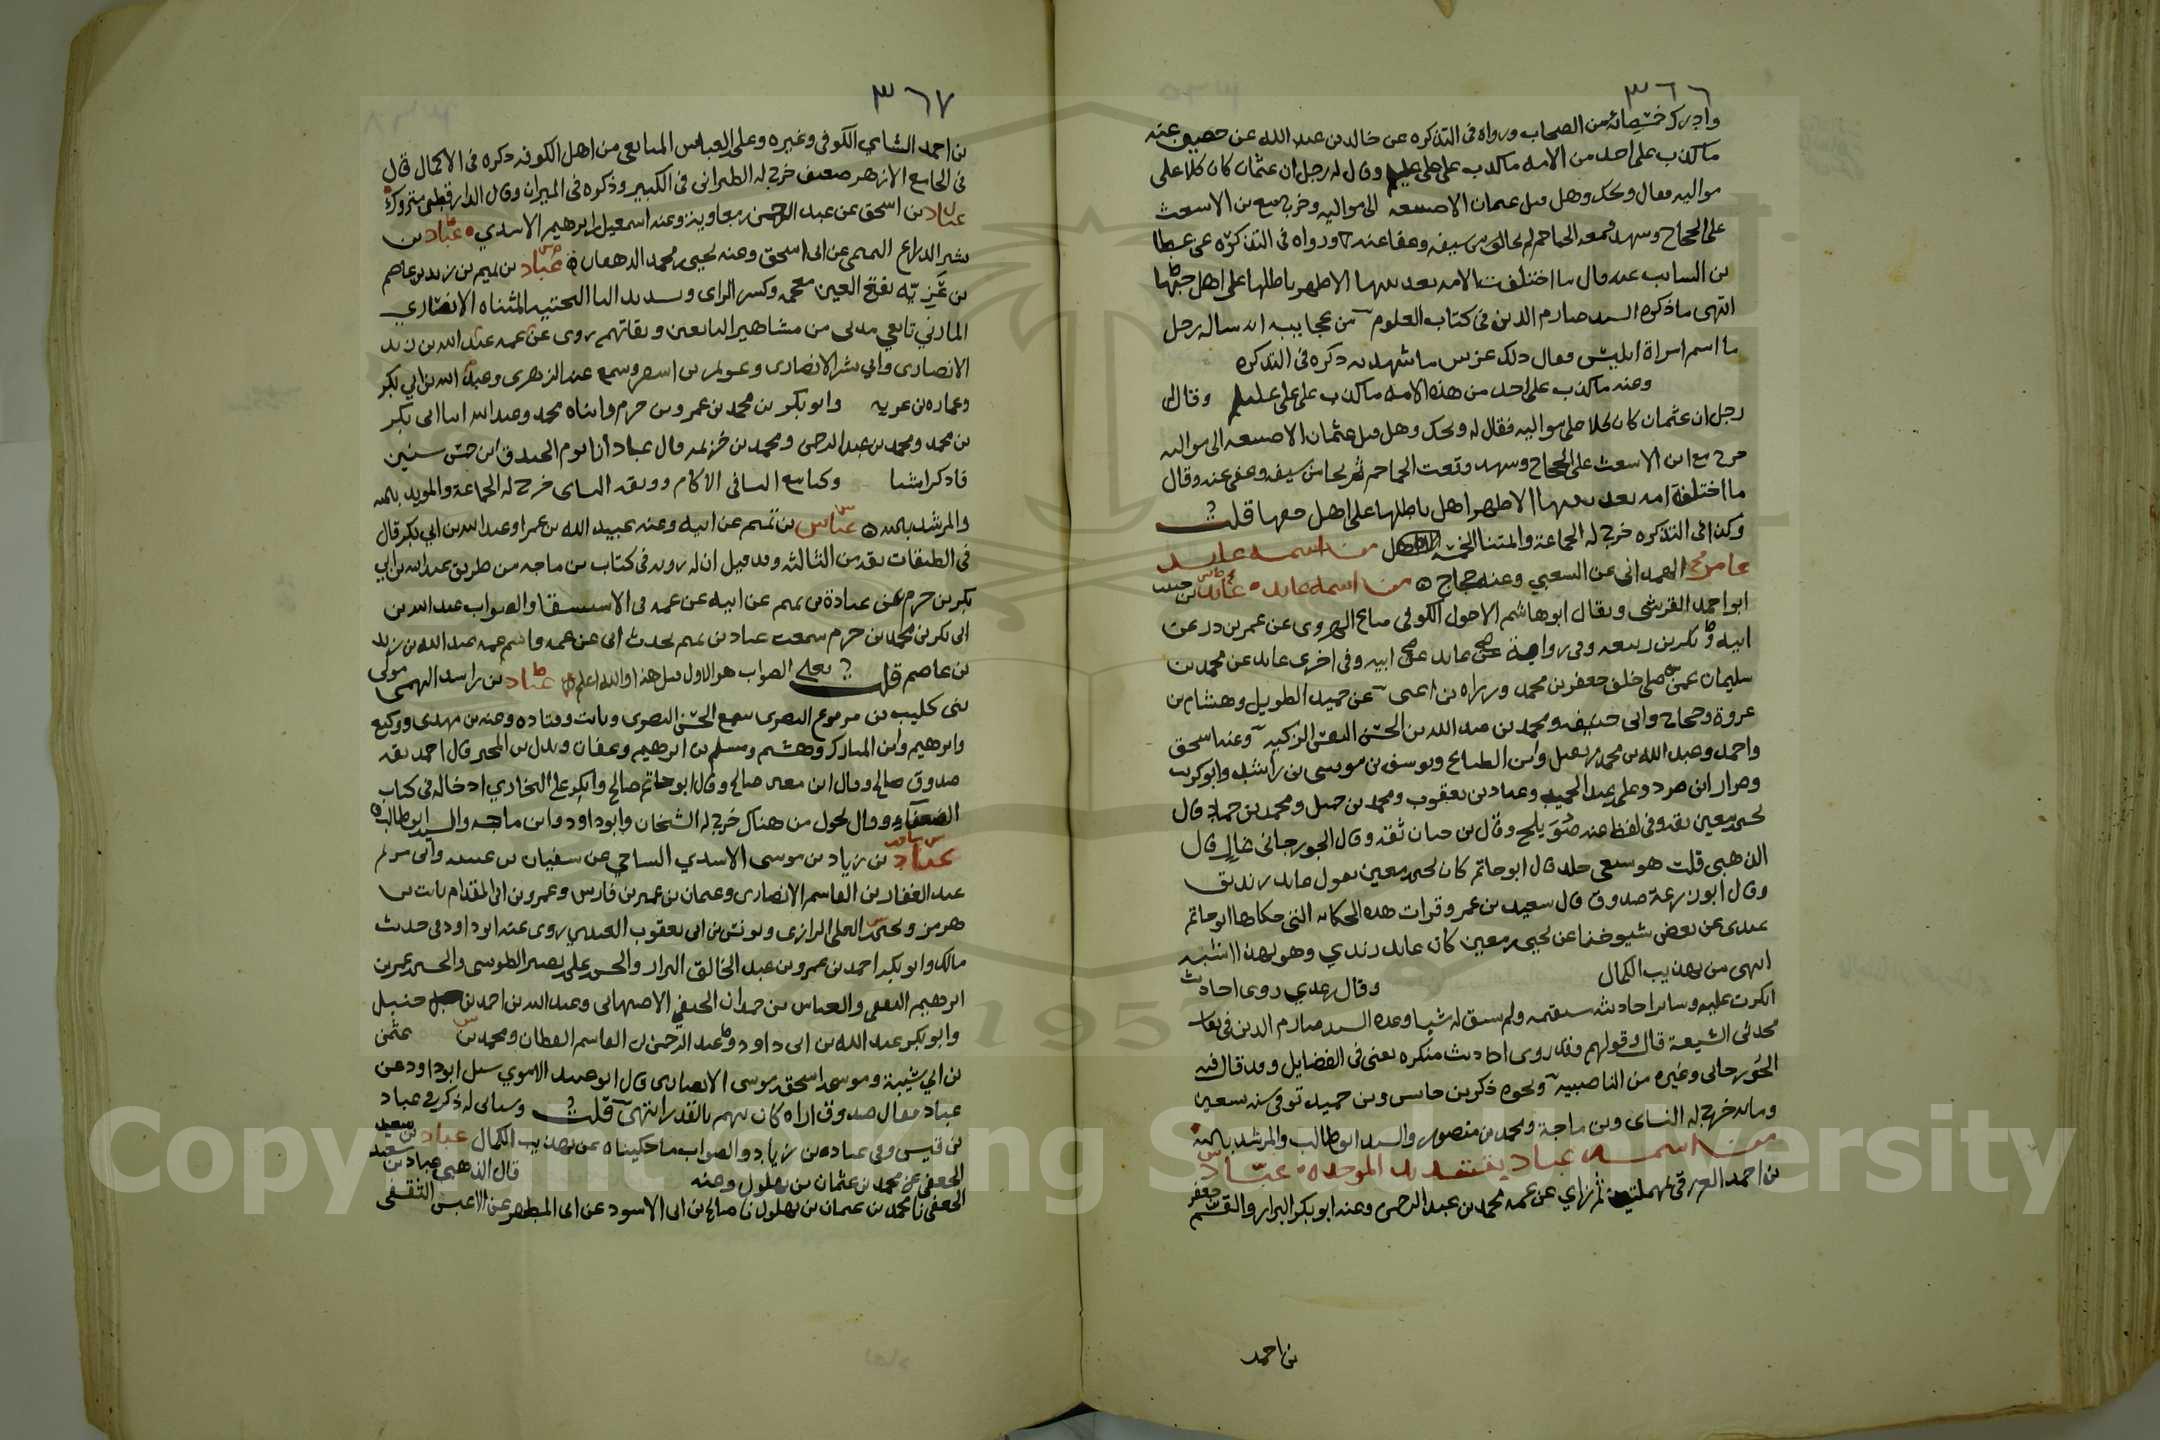 ٣٦٦
وادرك خمسمائة من الصحابه ورواه فى التذكره عن خالد بن عبد الله عن حصين عنه
ما كذب على احد من الامه ما كذب على على عليلم وقال له رجل ان عثمان كان كلا على
مواليه فقال ويحك وهل قتل عثمان الا صنيعه الى مواليه وخرج مع بن الاشعث
بن السايب عنه قال ما اختلفت الامه بعد نبيها الا ظهر باطلها على اهل حقها
انتهى ما ذكره السيد صارم الدين فى كتاب العلوم من عجايبه انه ساله رجل
ما اسم امراة ابليس فقال ذلك عرس ما شهدته ذكره فى التذكره
وعنه ما كذب على احد من هذه الامه ما كذب على على عليلم وقال
رجل ان عثمان كان كلا على مواليه فقال له ويحك وهل قتل عثمان الا صنيعه الى مواليه
خرج مع ابن الاشعث على الحجاج وشهد وقعت الجماجم ثم نجا من سيفه وعفى عنه وقال
ما اختلفة امه بعد نبيها الا ظهر اهل باطلها على اهل حقها قلت
وكذا فى التذكره خرج له الجماعة وائمتنا الخمسه من اسمه عايد
عامر الهمدانى عن الشعبي وعنه حجاج من اسمه عايد عائد بن حبيب
ابو احمد القرشى ويقال ابو هاشم الاحول الكوفى بياع الهروى عن عمر بن ذر عن
ابيه وبكر بن ربيعه وفى رواية عن عايد عن ابيه وفى اخرى عايد عن محمد بن
سليمان عمن صلى خلف جعفر بن محمد وزراره بن اعين عن حميد الطويل وهشام بن
عروة وحجاج وابى حنيفه ومحمد بن عبد الله بن الحسن النفس الزكيه وعنه اسحق
واحمد وعبد الله بن محمد بن نفيل وابن الطباع ويوسف بن موسى بن راشد وابو كريب
وضرار ابن صرد وعلى بن عبد الحميد وعباد بن يعقوب ومحمد بن جميل ومحمد بن حماد قال
يحيى بن معين ثقه وفى لفظ عنه صويلح وقال بن حبان ثقه وقال الجوزجانى غال قال
الذهبى قلت هو شيعى جلد قال ابو حاتم كان يحيى بن معين يقول عايد زنديق
وقال ابو زرعة صدوق قال سعيد بن عمرو قرات هذه الحكايه التى حكاها ابو حاتم
عندى عن بعض شيوخنا عن يحيى بن معين كان عايد زيدي وهو بهذا اشبه
انتهى من تهذيب الكمال وقال بن عدي روى احاديث
انكرت عليه وساير احاديثه مستقيمه ولم يسق له شيا وعده السيد صارم الدين فى ثقات
محدثى الشيعة قال وقولهم وقد روى احاديث منكره يعنى فى الفضايل وقد قال فيه
الجوزجانى وغيره من الناصبيه ونحوه ذكر بن حابس وبن حميد توفى سنه تسعين
ومايه خرج له النساى وبن ماجة ومحمد بن منصور والسيد ابو طالب والمرشد بالله
من اسمه عباد بتشديد الموحده عبّاد
بن احمد العرزمى بمهملتين ثم زاي عن عمه محمد بن عبد الرحمن وعنه ابو بكر البزار والقاسم بن جعفر
بن احمد
٣٦٧
بن احمد الشامي الكوفى وغيره وعلى بن العباس المقانعى من اهل الكوفه ذكره فى الاكمال قال
فى الجامع الازهر ضعيف خرج له الطبرانى فى الكبير وذكره فى الميزان وقال الدارقطنى متروك
عباد بن اسحق عن عبد الرحمن بن معاوية وعنه اسمعيل بن ابرهيم الاسدي عباد بن
بشير الدراع التميمى عن ابى اسحق وعنه يحيى بن محمد الدهقان عباد بن تميم بن زيد بن عاصم
بن غزيّه بفتح العين معجمه وكسر الزاى وتشديد اليا التحتيه المثناه الانصاري
المازني تابعي مدنى من مشاهير التابعين وثقاتهم روى عن عمه عبد الله بن زيد
الانصارى وابي بشر الانصارى وعويمر بن اشقر وسمع عنه الزهرى وعبد الله بن ابي بكر
وعماره بن غزيه وابو بكر بن محمد بن عمرو بن حزم وابناه محمد وعبد الله ابنا ابى بكر
بن محمد ومحمد بن عبد الرحمن ومحمد بن خزيمه قال عباد انا يوم الخندق ابن خمس سنين
فاذكر اشيا وكنا مع النسا فى الاكام ووثقه النساى خرج له الجماعة والمويد بالله
والمرشد بالله عباس بن تميم عن ابيه وعنه عبيد الله بن عمر وعبد الله بن ابي بكر قال
فى الطبقات ثقه من الثالثه وقد قيل ان له رويه فى كتاب بن ماجه من طريق عبد الله بن ابي
بكر بن حزم عن عبادة بن تميم عن ابيه عن عمه فى الاستسقا والصواب عبد الله بن
ابى بكر بن محمد بن حزم سمعت عباد بن تميم يحدث ابى عن عمه واسم عمه عبد الله بن زيد
بن عاصم قلت يعنى الصواب هو الاول قبل هذا والله اعلم عباد بن راشد التميمى مولى
بنى كليب بن يربوع البصرى سمع الحسن البصرى وثابت وقتاده وعنه بن مهدى ووكيع
وابرهيم وابن المبارك وهشيم ومسلم بن ابرهيم وعفان وبدل بن المحبر قال احمد ثقه
صدوق صالح وقال ابن معين صالح وقال ابو حاتم صالح وانكر على البخاري ادخاله فى كتاب
الضعفاء وقال يحول من هناك خرج له الشيخان وابو داود وابن ماجه والسيد ابو طالب
عباد بن زياد بن موسى الاسدي الساجي عن سفيان بن عيينه وابى مريم
عبد الغفار بن القاسم الانصارى وعثمان بن عمير بن فارس وعمرو بن ابى المقدام ثابت بن
هرمز ويحيى بن العلى الرازى ويونس بن ابى يعقوب العبدي روى عنه ابو داود فى حديث
مالك وابو بكر احمد بن عمرو بن عبد الخالق البزار والحسن بن على بن نصير الطوسى والحسن بن عمر بن
ابرهيم الثقفى والعباس بن حمدان الحنفي الاصبهانى وعبد الله بن احمد بن حنبل
وابو بكر عبد الله بن ابى داود وعبد الرحمن بن القاسم القطان ومحمد بن عثمن
بن ابي شيبة وموسى بن اسحق بن موسى الانصارى قال ابو عبيد الاجري سيل ابو داود عن
عباد فقال صدوق اراه كان يتهم بالقدر انتهى قلت وسياتى له ذكر فى عباد
بن قيس وفى عباده بن زياد والصواب ما حكيناه عن تهذيب الكمال عباد بن سعيد
الجعفي عن محمد بن عثمان بن بهلول وعنه قال الذهبي عباد بن سعيد
الجعفى نا محمد بن عثمان بن بهلول نا صالح بن ابى الاسود عن ابى المطهر عن الاعمش الثقفى
Copyright King Saud University
1957